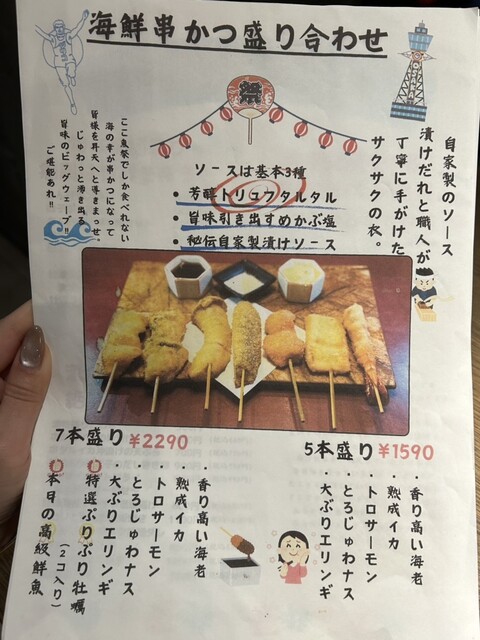 海鮮串かつ盛り合わせ
祭
自家製のソース
漬けだれと職人が
丁寧に手がけた
サクサクの衣。
ソースは基本3種
・芳醇トリュフタルタル
・旨味引き出すめかぶ塩
・秘伝自家製漬けソース
ここ魚祭でしか食べれない
海の幸が串かつになって
皆様を昇天へと導きまっせ。
じゅわっと沸き出る
旨味のビッグウェーブ!!
ご堪能あれ!!
7本盛り ¥2290
・香り高い海老
・熟成イカ
・トロサーモン
・とろじゅわナス
・大ぶりエリンギ
特選ぷりぷり牡蠣
(2コ入り)
本日の高級鮮魚
5本盛り ¥1590
・香り高い海老
・熟成イカ
・トロサーモン
・とろじゅわナス
・大ぶりエリンギ